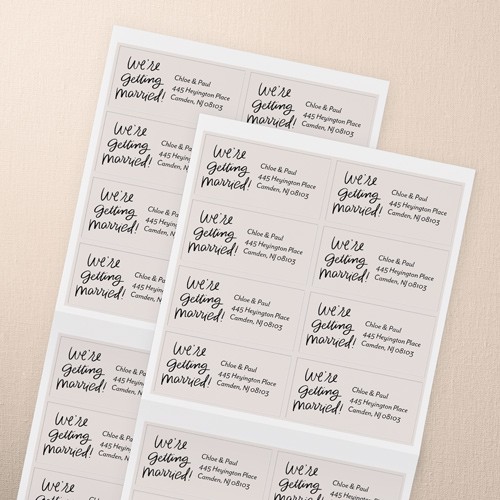 We're
Getting
Married!
Chloe & Paul
445 Heyington Place
Camden, NJ 08103
We're
Getting
Married!
Chloe & Paul
445 Heyington Place
Camden, NJ 08103
We're
Getting
Married!
Chloe &
445
Camden,
We're
Getting
Married!
Chloe &
445
Camden,
We're
Getting
Married!
Chloe &
445
Camden,
We're
Getting
Married!
Chloe &
445
Camden,
We're
Getting
Married!
Chloe &
445
We're
Getting
Chloe
We're
Getting
Married!
Chloe & Paul
445 Heyington Place
Camden, NJ 08103
We're
Getting
Married!
Chloe & Paul
445 Heyington Place
Camden, NJ 08103
We're
Getting
Married!
Chloe & Paul
445 Heyington Place
Camden, NJ 08103
We're
Getting
Married!
Chloe & Paul
445 Heyington Place
Camden, NJ 08103
We're
Getting
Married!
Chloe & Paul
445 Heyington Place
Camden, NJ 08103
We're
Getting
Married!
Chloe & Paul
445 Heyington Place
Camden, NJ 08103
We're
Getting
Married!
Chloe & Paul
445 Heyington Place
Camden, NJ 08103
We're
Getting
Married!
Chloe & Paul
445 Heyington Place
Camden, NJ 08103
We're
Getting
Married!
Chloe & Paul
445 Heyington Place
Camden, NJ 08103
We're
Getting
Married!
Chloe & Paul
445 Heyington Place
Camden, NJ 08103